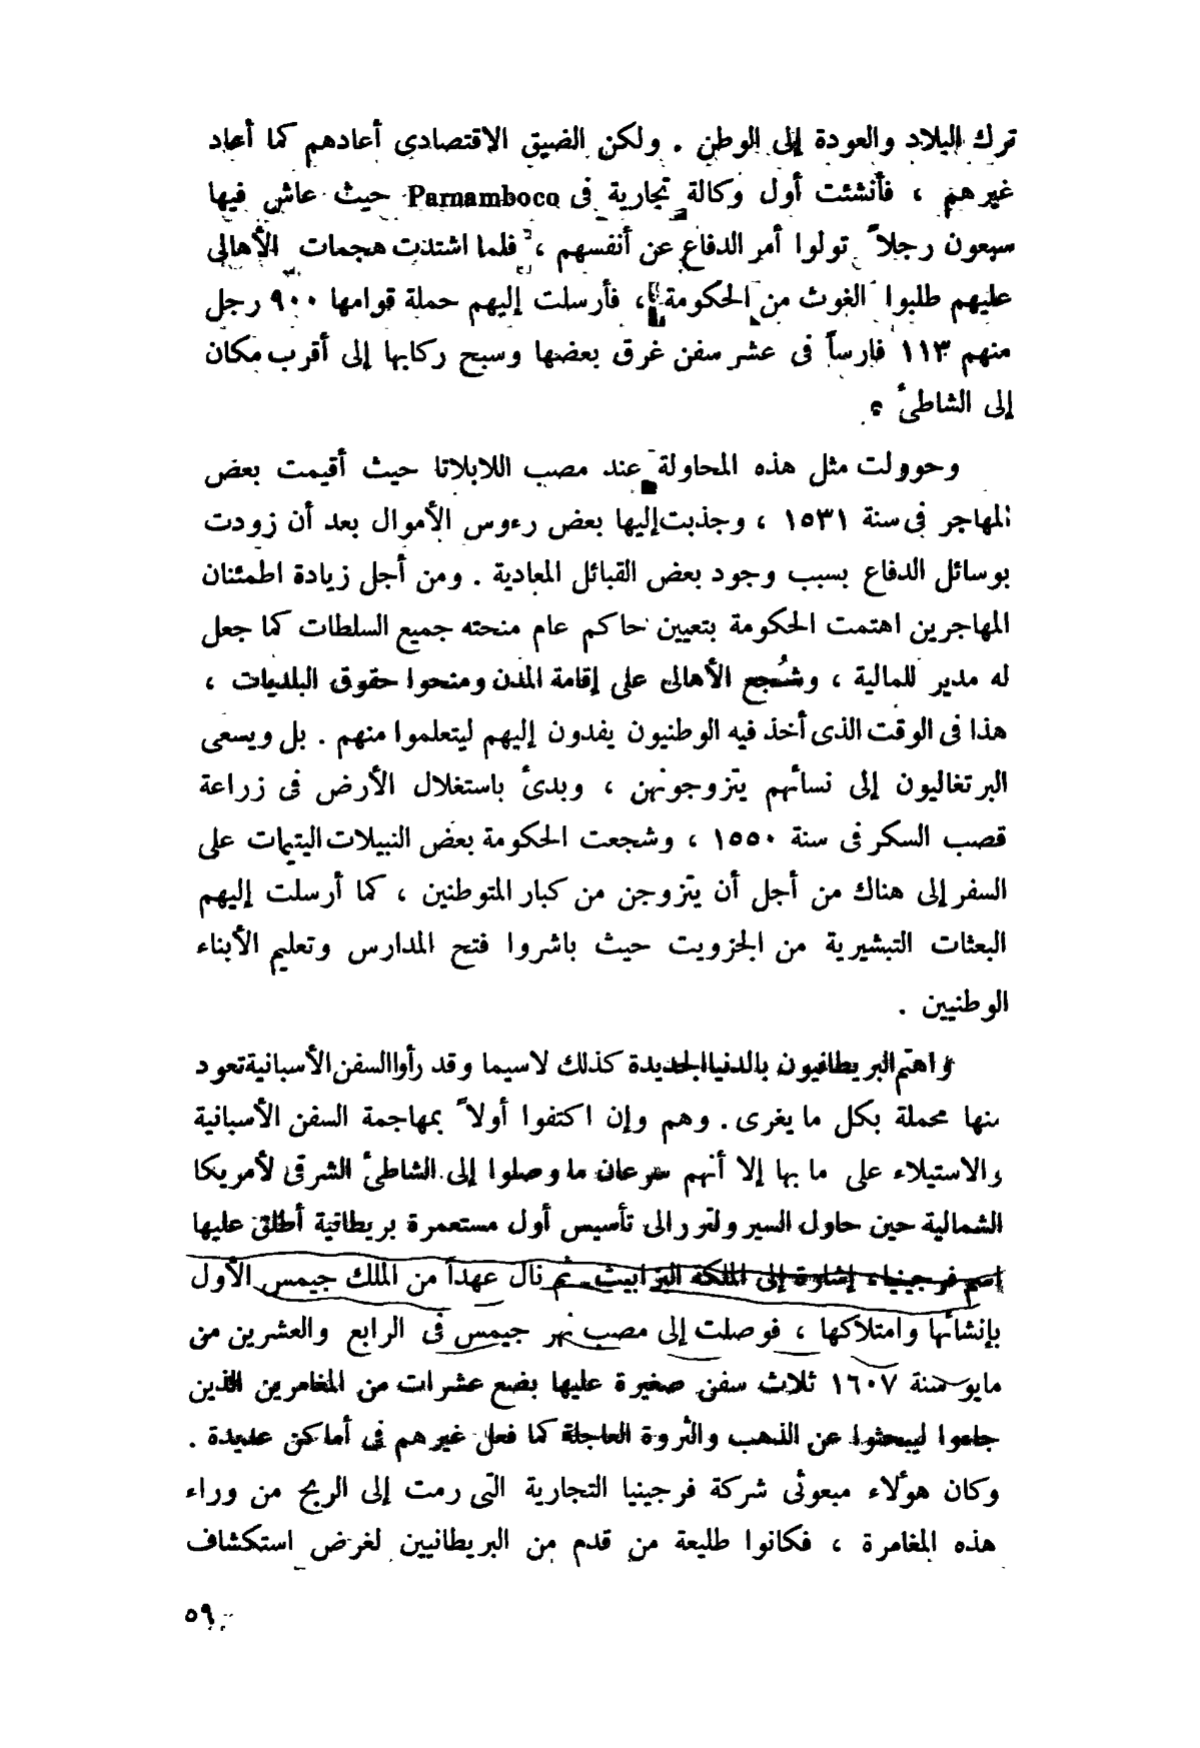 ترك البلاد والعودة إلى الوطن . ولكن الضيق الاقتصادى أعادهم كما أعاد
غيرهم ، فأنشئت أول وكالة تجارية فى Parnamboco حيث عاش فيها
سبعون رجلاً تولوا أمر الدفاع عن أنفسهم ، فلما اشتدت هجمات الأهالى
عليهم طلبوا الغوث من الحكومة ، فأرسلت إليهم حملة قوامها ٩٠٠ رجل
منهم ١١٣ فارساً فى عشر سفن غرق بعضها وسبح ركابها إلى أقرب مكان
إلى الشاطئ .
وحوولت مثل هذه المحاولة عند مصب اللابلاتا حيث أقيمت بعض
المهاجر فى سنة ١٥٣١ ، وجذبت إليها بعض رءوس الأموال بعد أن زودت
بوسائل الدفاع بسبب وجود بعض القبائل المعادية . ومن أجل زيادة اطمئنان
المهاجرين اهتمت الحكومة بتعيين حاكم عام منحته جميع السلطات كما جعل
له مدير للمالية ، وشُجع الأهالى على إقامة المدن ومنحوا حقوق البلديات ،
هذا فى الوقت الذى أخذ فيه الوطنيون يفدون إليهم ليتعلموا منهم . بل ويسعى
البرتغاليون إلى نسائهم يتزوجونهن ، وبدئ باستغلال الأرض فى زراعة
قصب السكر فى سنة ١٥٥٠ ، وشجعت الحكومة بعض النبيلات اليتيمات على
السفر إلى هناك من أجل أن يتزوجن من كبار المتوطنين ، كما أرسلت إليهم
البعثات التبشيرية من الجزويت حيث باشروا فتح المدارس وتعليم الأبناء
الوطنيين .
واهتم البريطانيون بالدنيا الجديدة كذلك لاسيما وقد رأوا السفن الأسبانية تعود
منها محملة بكل ما يغرى . وهم وإن اكتفوا أولاً بمهاجمة السفن الأسبانية
والاستيلاء على ما بها إلا أنهم سرعان ما وصلوا إلى الشاطئ الشرقى لأمريكا
الشمالية حين حاول السير ولتر رالى تأسيس أول مستعمرة بريطانية أطلق عليها
إسم فرجينيا، إشارة إلى الملكة اليزابيث. ثم نال عهداً من الملك جيمس الأول
بإنشائها وامتلاكها ، فوصلت إلى مصب نهر جيمس فى الرابع والعشرين من
مايو سنة ١٦٠٧ ثلاث سفن صغيرة عليها بضع عشرات من المغامرين الذين
جاءوا ليبحثوا عن الذهب والثروة العاجلة كما فعل غيرهم فى أماكن عديدة .
وكان هؤلاء مبعوثى شركة فرجينيا التجارية التى رمت إلى الربح من وراء
هذه المغامرة ، فكانوا طليعة من قدم من البريطانيين لغرض استكشاف
٥٩